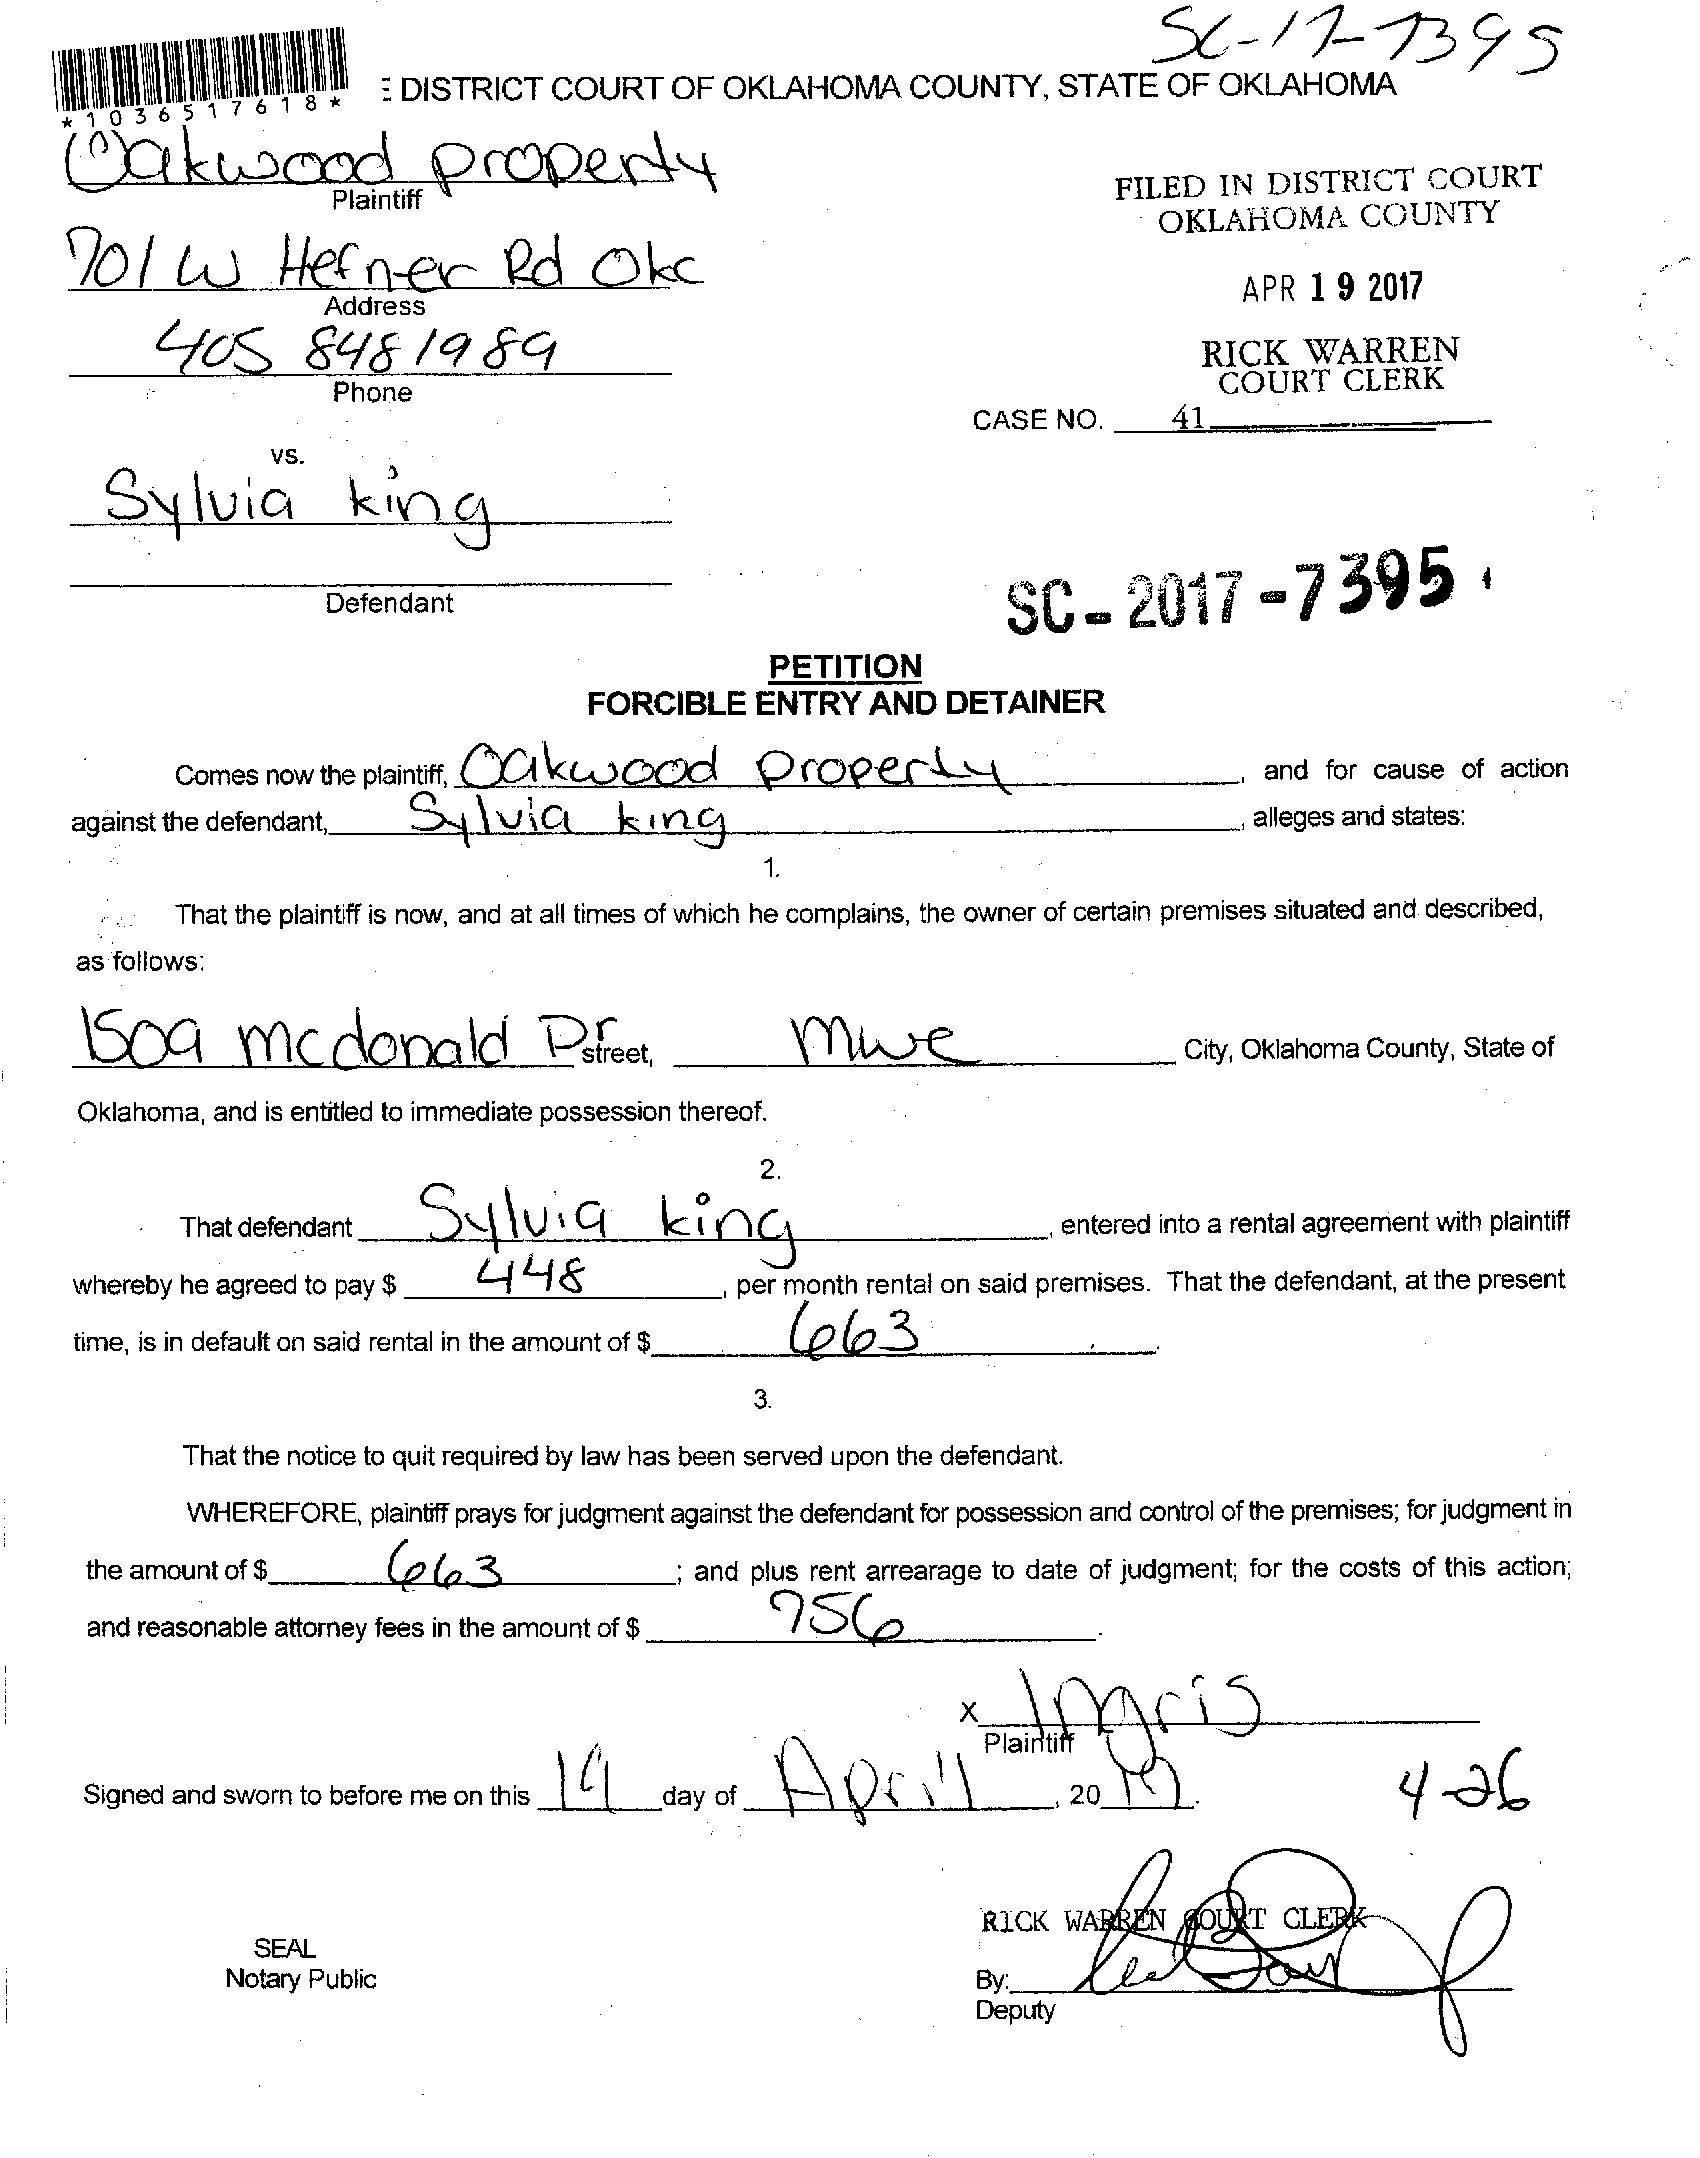 SC-17-7395
E DISTRICT COURT OF OKLAHOMA COUNTY, STATE OF OKLAHOMA
*1036517618*
Oakwood property
Plaintiff
FILED IN DISTRICT COURT
OKLAHOMA COUNTY
701 W Hefner Rd Okc
Address
APR 19 2017
405 848 1989
Phone
RICK WARREN
COURT CLERK
CASE NO. 41
vs.
Sylvia king
Defendant
SC-2017-7395
PETITION
FORCIBLE ENTRY AND DETAINER
Comes now the plaintiff, Oakwood property, and for cause of action
against the defendant, Sylvia king, alleges and states:
1.
That the plaintiff is now, and at all times of which he complains, the owner of certain premises situated and described,
as follows:
1509 mcdonald Dr street, mwc City, Oklahoma County, State of
Oklahoma, and is entitled to immediate possession thereof.
2.
That defendant Sylvia king, entered into a rental agreement with plaintiff
whereby he agreed to pay $ 448, per month rental on said premises. That the defendant, at the present
time, is in default on said rental in the amount of $ 663.
3.
That the notice to quit required by law has been served upon the defendant.
WHEREFORE, plaintiff prays for judgment against the defendant for possession and control of the premises; for judgment in
the amount of $ 663; and plus rent arrearage to date of judgment; for the costs of this action;
and reasonable attorney fees in the amount of $ 756.
X Ingris
Plaintiff
Signed and sworn to before me on this 19 day of April, 20 17.
4-26
RICK WARREN COURT CLERK
SEAL
Notary Public
By:
Deputy